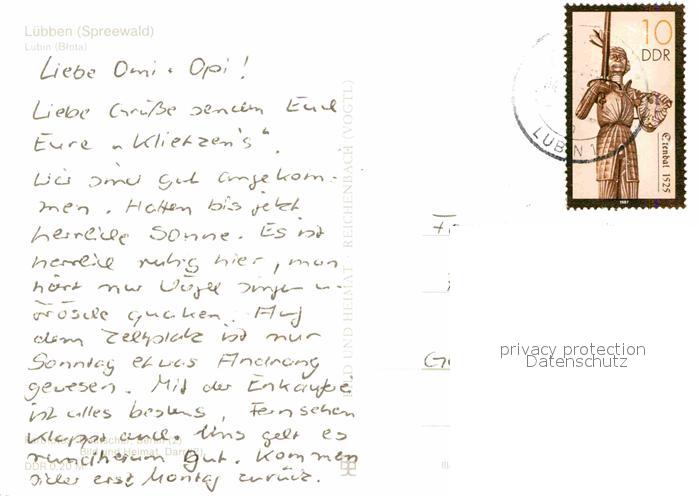 Lübben (Spreewald)
Lubin (Błota)
Liebe Omi + Opi!
Liebe Grüße senden Euch
Eure "Klietzen's".
Wir sind gut angekom-
men. Hatten bis jetzt
herrliche Sonne. Es ist
herrlich ruhig hier, man
hört nur Vögel singen u.
Frösche quaken. Auf
dem Zeltplatz ist nur
Sonntag etwas Andrang
gewesen. Mit der Einkauferei
ist alles bestens, Fernsehen
klappt auch. Uns geht es
rundherum gut. Kommen
sicher erst Montag zurück.
DDR 0,20 M
BILD UND HEIMAT REICHENBACH (VOGTL)
10
DDR
Stendal 1525
1987
LUBIN 1
privacy protection
Datenschutz